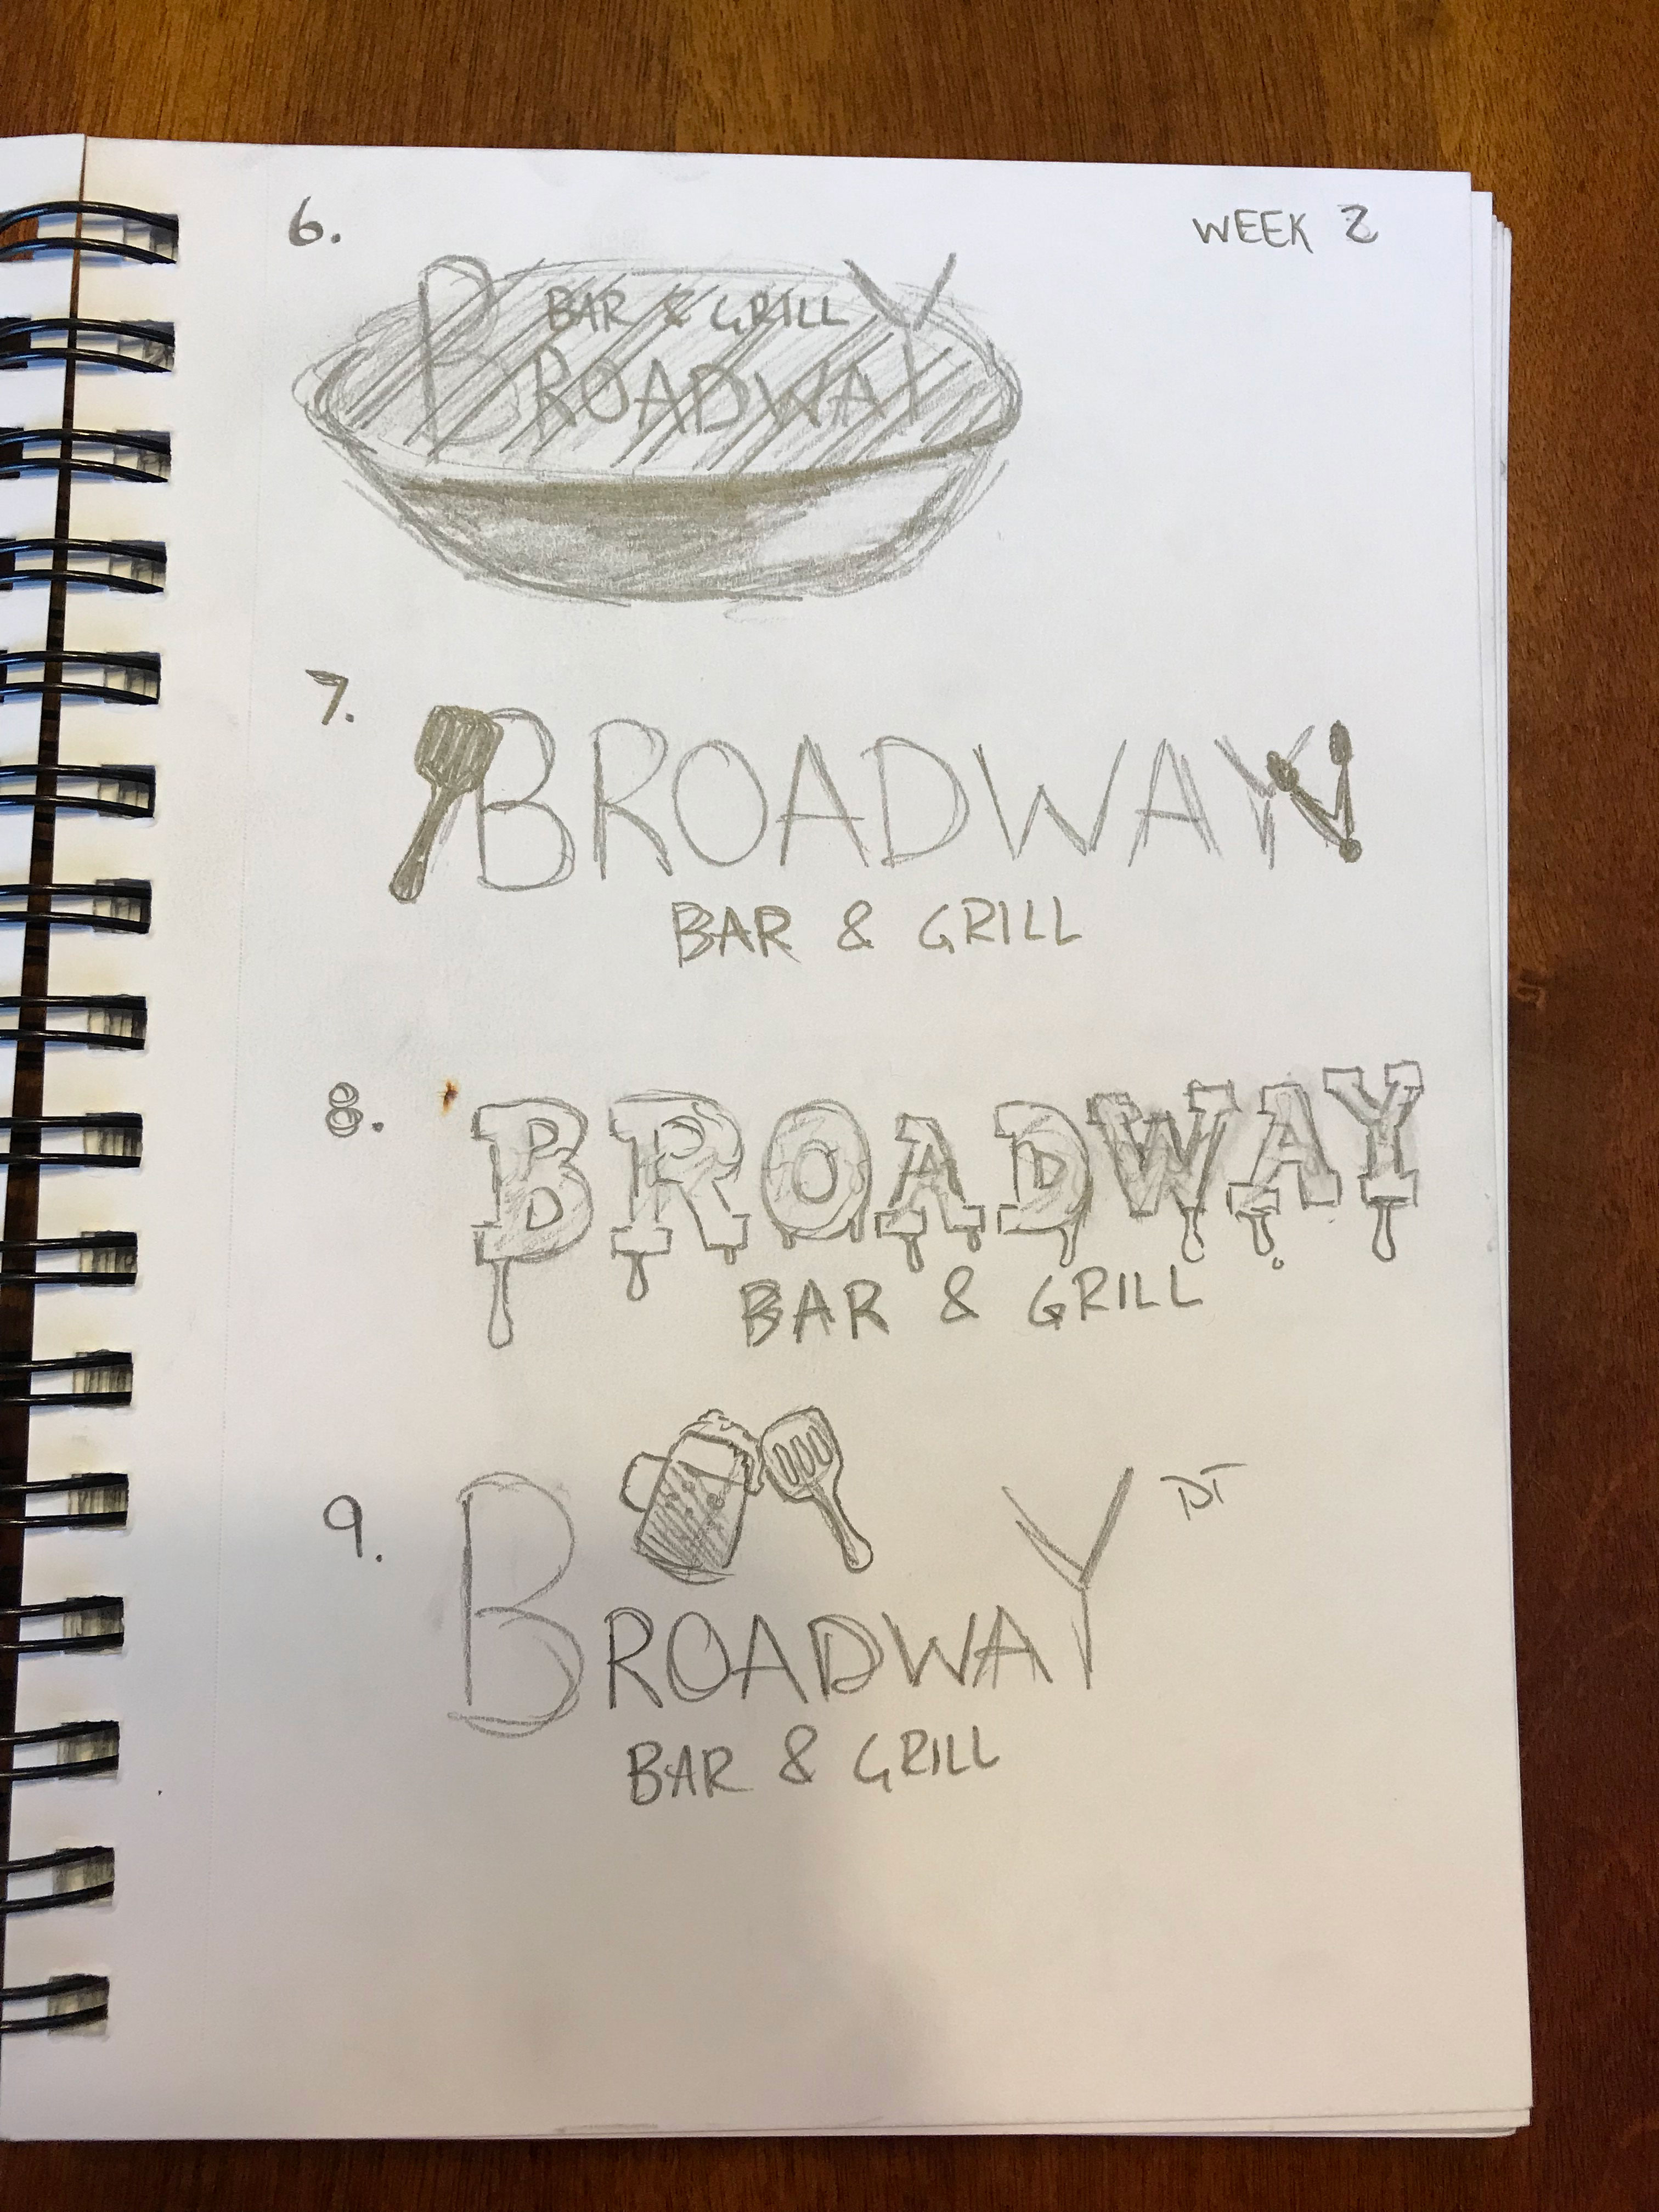 6.
WEEK 2
BAR & GRILL
BROADWAY
7.
BROADWAY
BAR & GRILL
8.
BROADWAY
BAR & GRILL
9.
BROADWAY
DT
BAR & GRILL